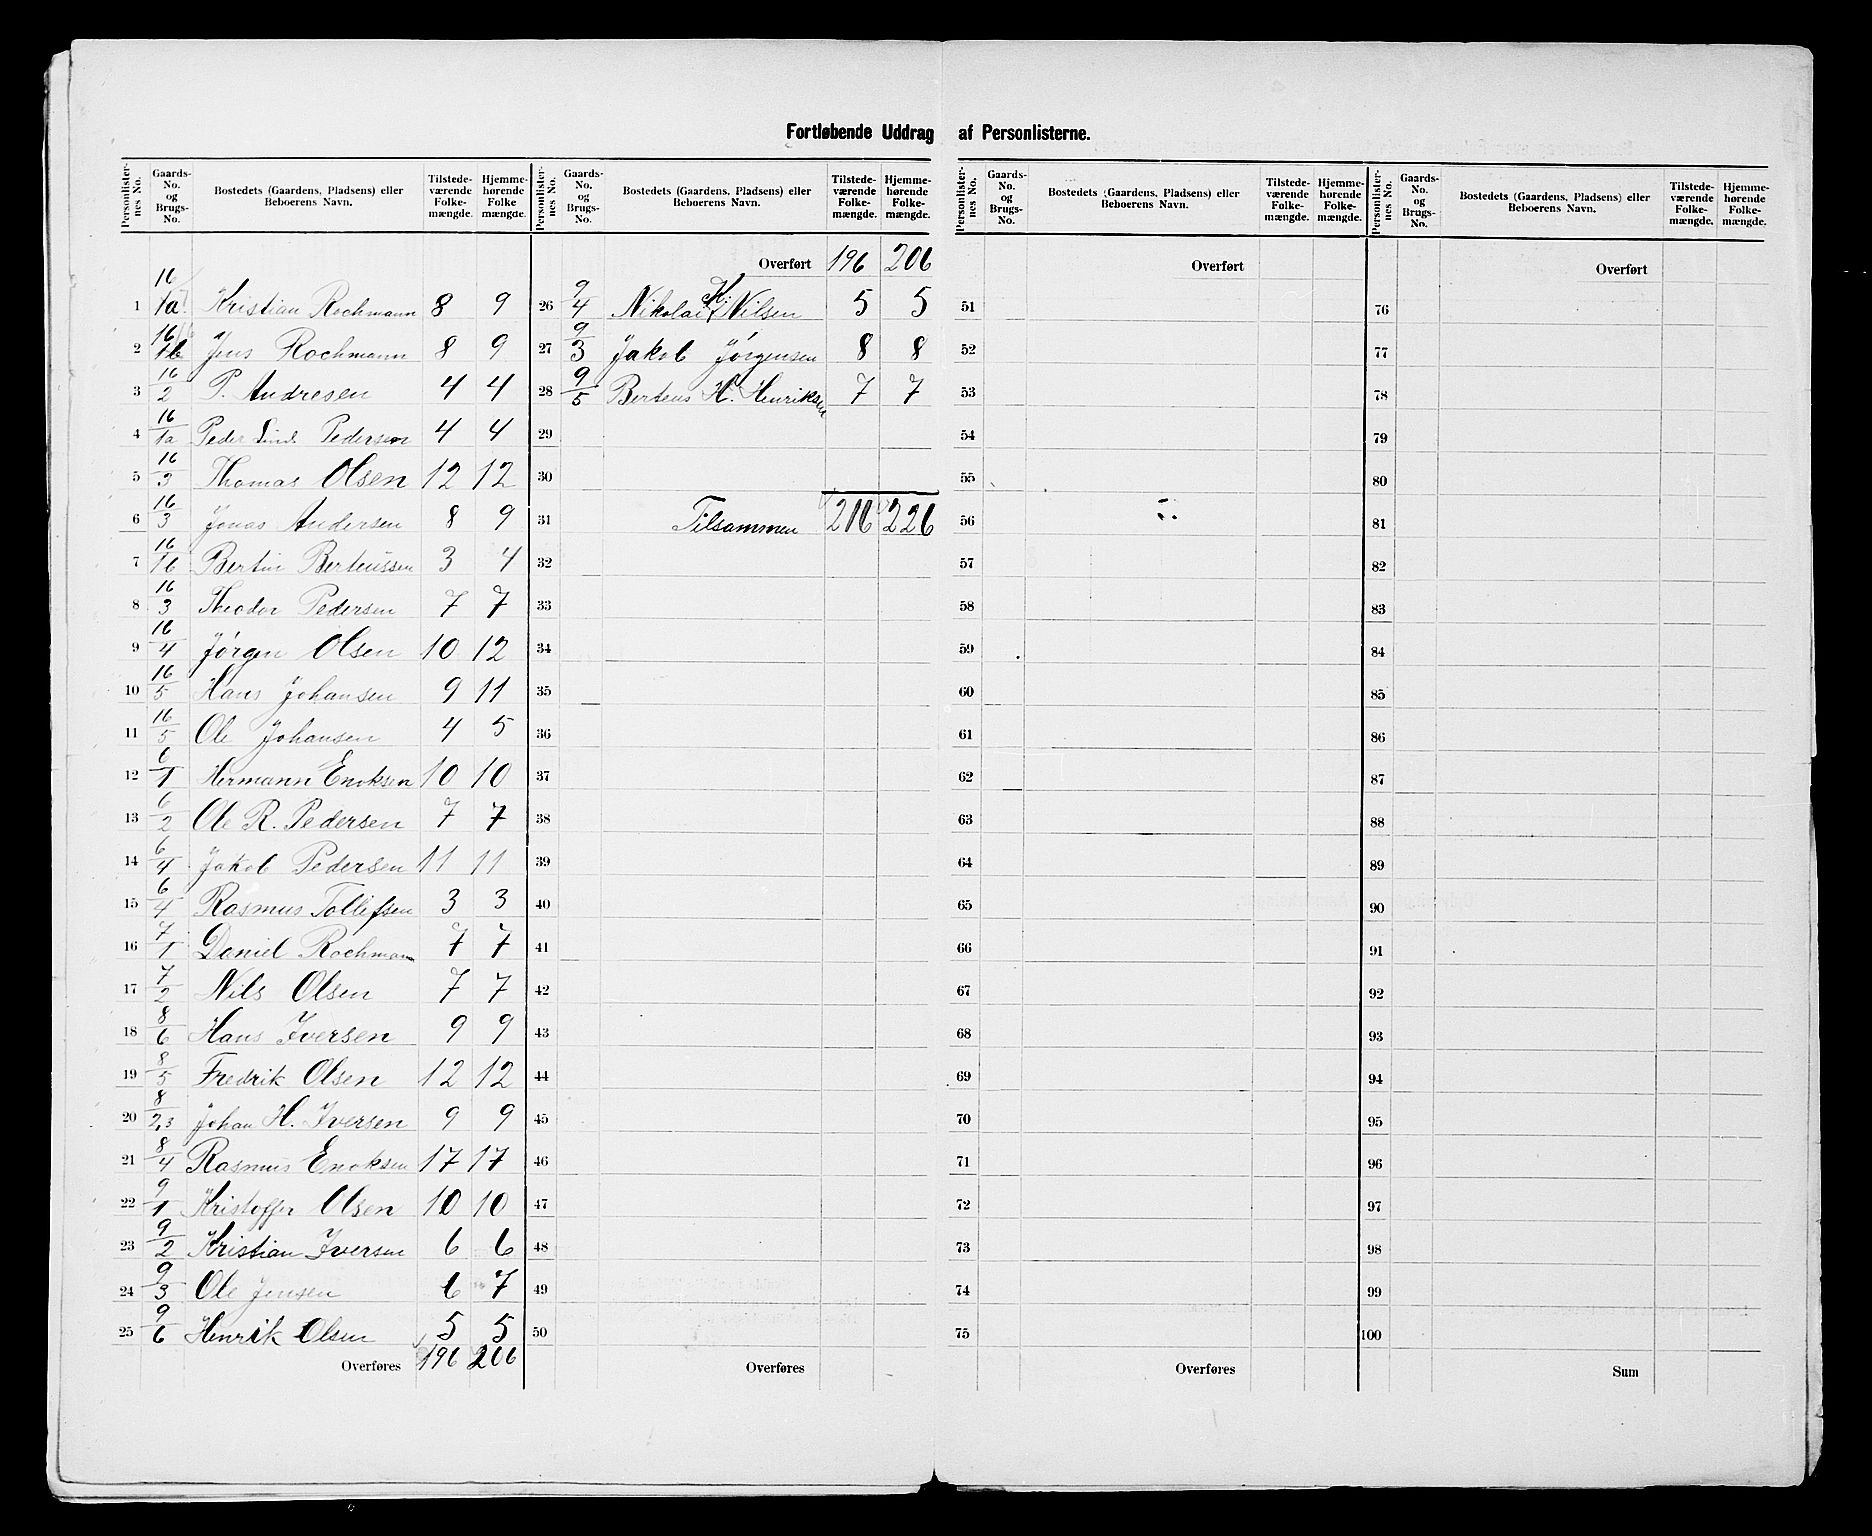 Fortløbende Uddrag af Personlisterne.
Personlister-nes No. | Gaards-No. og Brugs-No. | Bostedets (Gaardens, Pladsens) eller Beboerens Navn. | Tilstede-værende Folke-mængde. | Hjemme-hørende Folke mængde.
1 16/1a Kristian Rochmann 8 9
2 16/1b Jens Rochmann 8 9
3 16/2 P. Andresen 4 4
4 16/1a Peder Lind. Pedersen 4 4
5 16/3 Thomas Olsen 12 12
6 16/3 Jonas Andersen 8 9
7 16/1b Bertin Berteussen 3 4
8 16/3 Theodor Pedersen 7 7
9 16/4 Jørgen Olsen 10 12
10 16/5 Hans Johansen 9 11
11 16/5 Ole Johansen 4 5
12 6/1 Hermann Enoksen 10 10
13 6/2 Ole R. Pedersen 7 7
14 6/4 Jakob Pedersen 11 11
15 6/4 Rasmus Tollefsen 3 3
16 7/1 Daniel Rochmann 7 7
17 7/2 Nils Olsen 7 7
18 8/6 Hans Iversen 9 9
19 8/5 Fredrik Olsen 12 12
20 8/2,3 Johan H. Iversen 9 9
21 8/4 Rasmus Enoksen 17 17
22 9/1 Kristoffer Olsen 10 10
23 9/2 Kristian Iversen 6 6
24 9/3 Ole Jensen 6 7
25 9/6 Henrik Olsen 5 5
Overføres 196 206
Personlister-nes No. | Gaards-No. og Brugs-No. | Bostedets (Gaardens, Pladsens) eller Beboerens Navn. | Tilstede-værende Folke-mængde. | Hjemme-hørende Folke-mængde.
Overført 196 206
26 9/4 Nikolai K. Nilsen 5 5
27 9/3 Jakob Jørgensen 8 8
28 9/5 Berteus H. Henriksen 7 7
29
30
31 Tilsammen 216 226
32
33
34
35
36
37
38
39
40
41
42
43
44
45
46
47
48
49
50
Overføres
Personlister-nes No. | Gaards-No. og Brugs-No. | Bostedets (Gaardens, Pladsens) eller Beboerens Navn. | Tilstede-værende Folke-mængde. | Hjemme-hørende Folke-mængde.
Overført
51
52
53
54
55
56
57
58
59
60
61
62
63
64
65
66
67
68
69
70
71
72
73
74
75
Overføres
Personlister-nes No. | Gaards-No. og Brugs-No. | Bostedets (Gaardens, Pladsens) eller Beboerens Navn. | Tilstede-værende Folke-mængde. | Hjemme-hørende Folke-mængde.
Overført
76
77
78
79
80
81
82
83
84
85
86
87
88
89
90
91
92
93
94
95
96
97
98
99
100
Sum